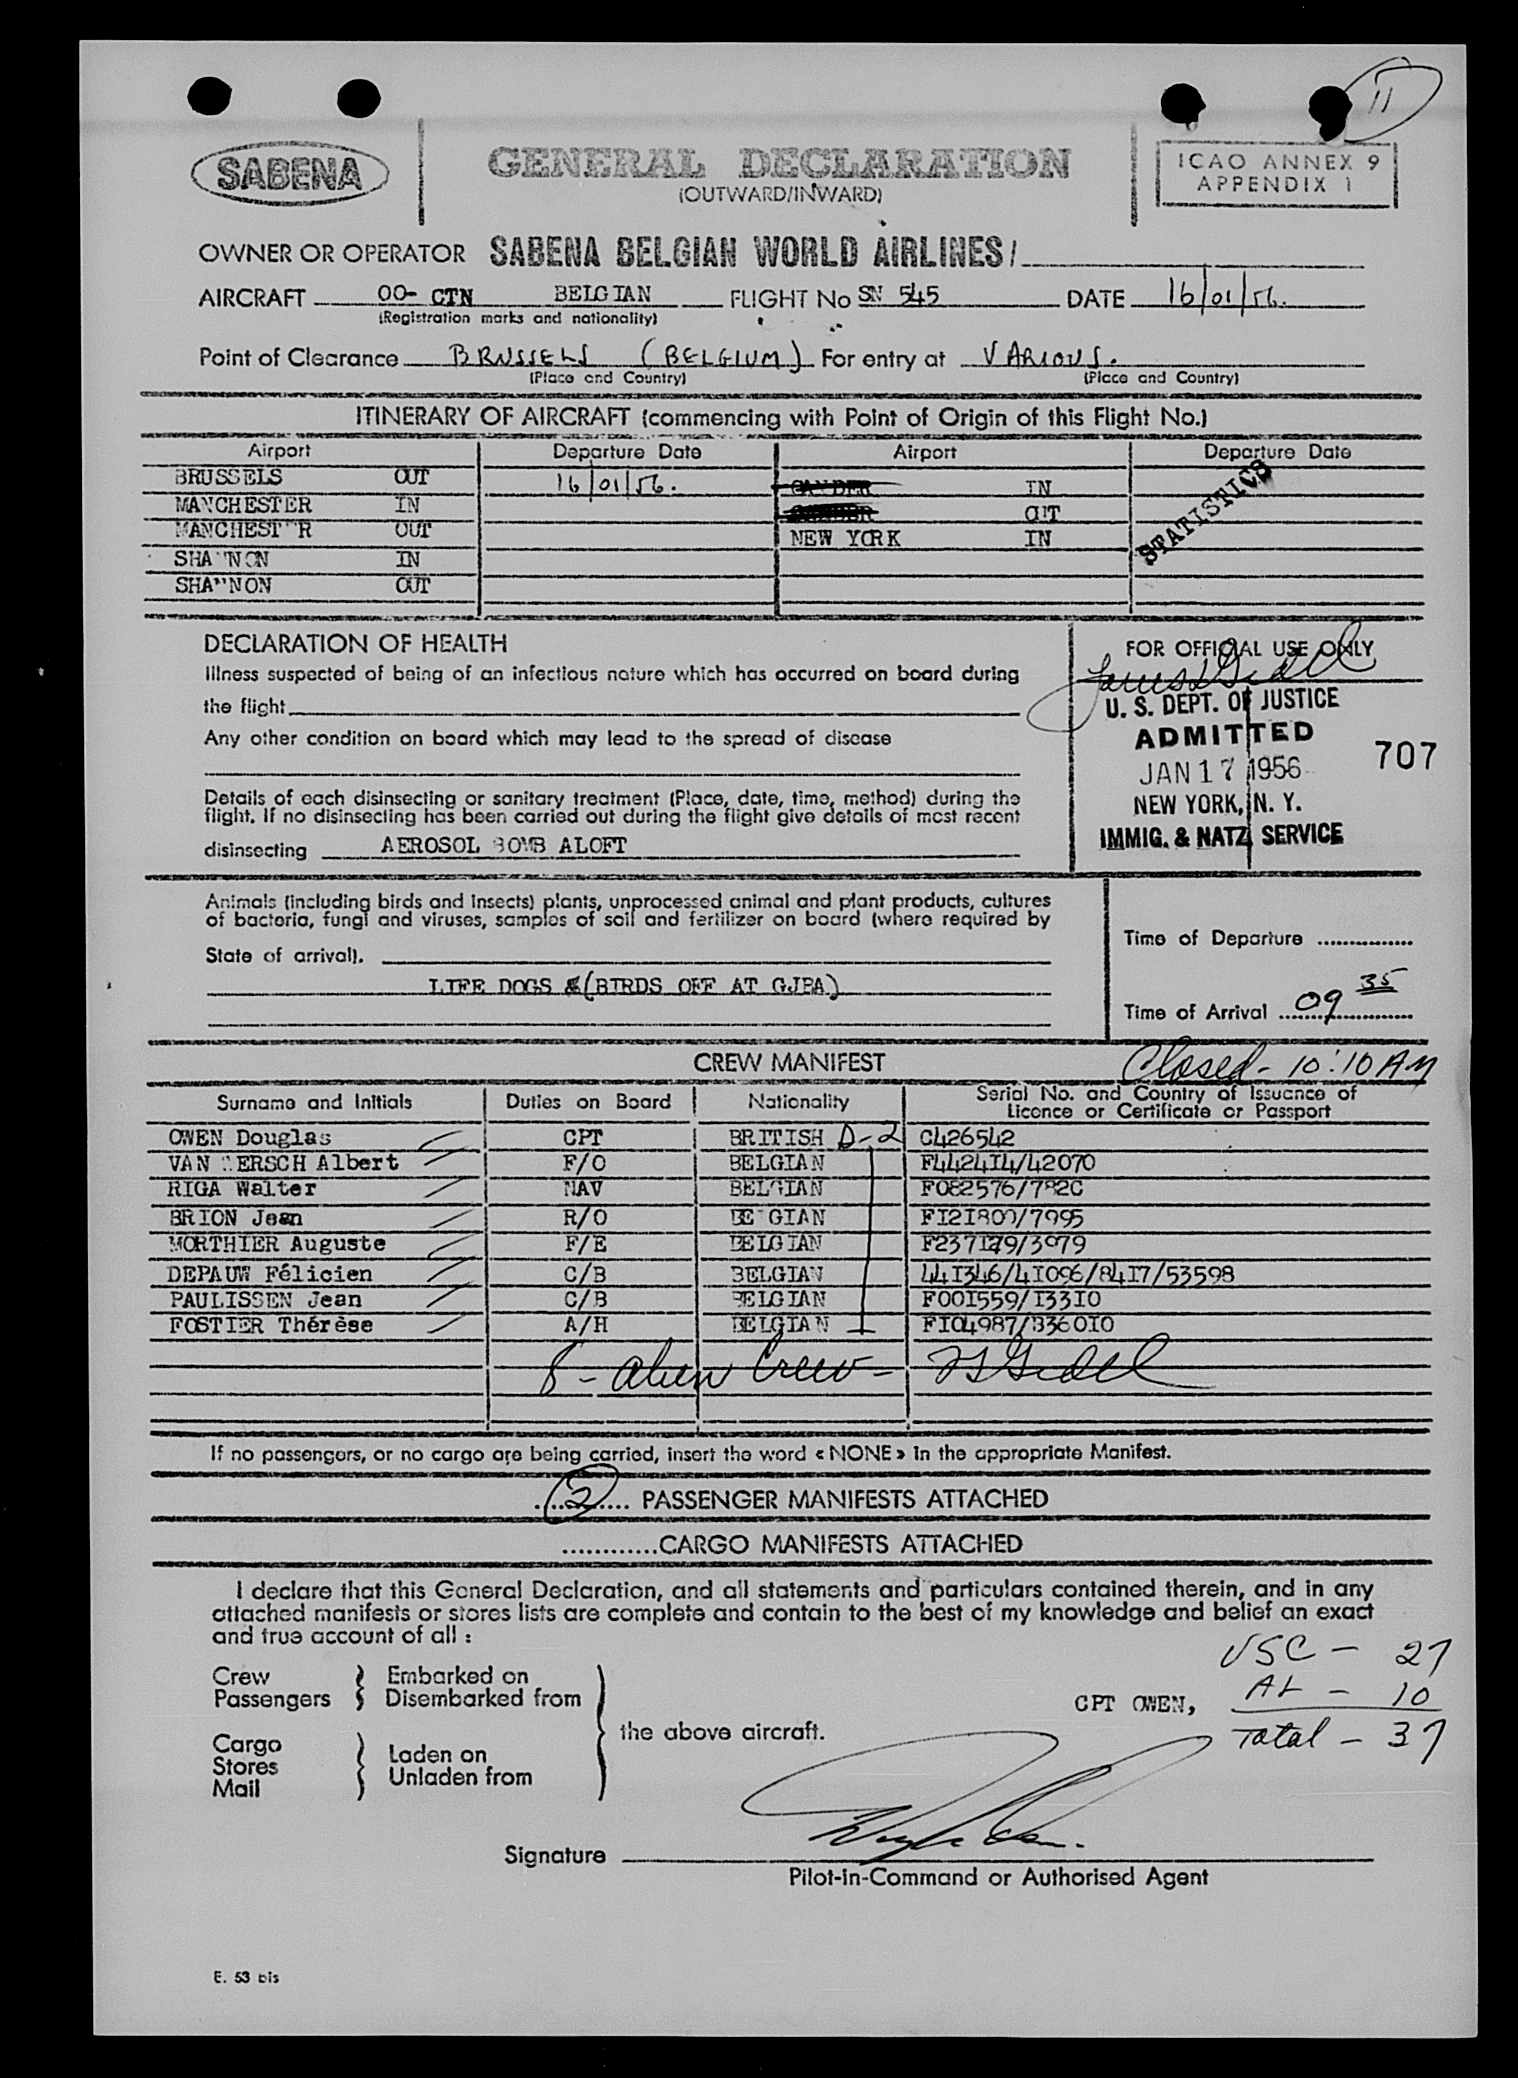 11
SABENA
GENERAL DECLARATION
(OUTWARD/INWARD)
ICAO ANNEX 9
APPENDIX 1
OWNER OR OPERATOR SABENA BELGIAN WORLD AIRLINES/
AIRCRAFT OO- CTN BELGIAN FLIGHT No SN 545 DATE 16/01/56.
(Registration marks and nationality)
Point of Clearance BRUSSELS (BELGIUM) For entry at VARIOUS.
(Place and Country) (Place and Country)
ITINERARY OF AIRCRAFT (commencing with Point of Origin of this Flight No.)
Airport Departure Date Airport Departure Date
BRUSSELS OUT 16/01/56. GANDER IN
MANCHESTER IN GANDER OUT
MANCHEST R OUT NEW YORK IN
SHA NON IN
SHA NON OUT
STATISTICS
DECLARATION OF HEALTH
Illness suspected of being of an infectious nature which has occurred on board during
the flight
Any other condition on board which may lead to the spread of disease
Details of each disinsecting or sanitary treatment (Place, date, time, method) during the
flight. If no disinsecting has been carried out during the flight give details of most recent
disinsecting AEROSOL BOMB ALOFT
FOR OFFICIAL USE ONLY
U. S. DEPT. OF JUSTICE
ADMITTED
JAN 17 1956
NEW YORK, N. Y.
IMMIG. & NATZ SERVICE
707
Animals (including birds and insects) plants, unprocessed animal and plant products, cultures
of bacteria, fungi and viruses, samples of soil and fertilizer on board (where required by
State of arrival).
LIFE DOGS & (BIRDS OFF AT GJBA)
Time of Departure
Time of Arrival 09 35
Closed - 10:10 AM
CREW MANIFEST
Surname and Initials Duties on Board Nationality Serial No. and Country of Issuance of
Licence or Certificate or Passport
OWEN Douglas CPT BRITISH D-2 C426542
VAN ERSCH Albert F/O BELGIAN F442414/42070
RIGA Walter NAV BELGIAN F082576/7820
BRION Jean R/O BE GIAN F121809/7995
MORTHIER Auguste F/E BELGIAN F237149/3979
DEPAUW Félicien C/B BELGIAN 441346/41096/8417/53598
PAULISSEN Jean C/B BELGIAN F001559/13310
FOSTIER Thérèse A/H BELGIAN F104987/336010
8 - alien Crew -
If no passengers, or no cargo are being carried, insert the word « NONE » in the appropriate Manifest.
2 PASSENGER MANIFESTS ATTACHED
CARGO MANIFESTS ATTACHED
I declare that this General Declaration, and all statements and particulars contained therein, and in any
attached manifests or stores lists are complete and contain to the best of my knowledge and belief an exact
and true account of all :
Crew Embarked on
Passengers Disembarked from
the above aircraft.
Cargo
Stores Laden on
Mail Unladen from
CPT OWEN,
USC - 27
AL - 10
Total - 37
Signature
Pilot-in-Command or Authorised Agent
E. 53 bis